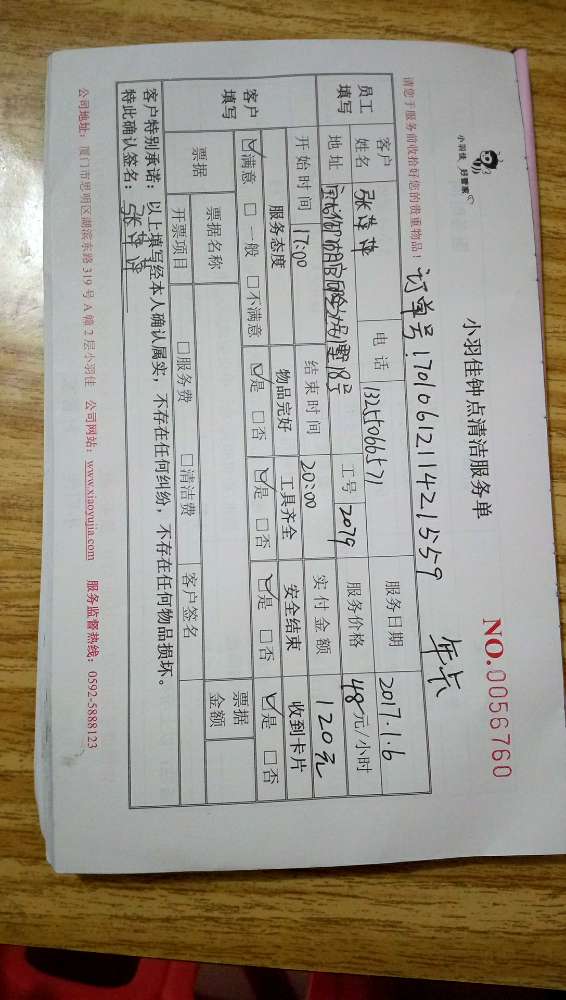 小羽佳 好管家
小羽佳钟点清洁服务单
NO.0056760
请您于服务前收拾好您的贵重物品！
订单号:1701061211421559
年卡
员工填写
客户姓名 张萍萍 电话 13255066571 服务日期 2017.1.6
地址 18号 工号 2079 服务价格 48元/小时
开始时间 17:00 结束时间 20:00 实付金额 120元
客户填写
服务态度 物品完好 工具齐全 安全结束 收到卡片
☑满意 □一般 □不满意 ☑是 □否 ☑是 □否 ☑是 □否 ☑是 □否
票据 票据名称 票据金额
开票项目 □服务费 □清洁费 客户签名
客户特别承诺：以上填写经本人确认属实，不存在任何纠纷，不存在任何物品损坏。
特此确认签名：张萍萍
公司地址：厦门市思明区湖滨东路319号A幢2层小羽佳 公司网站：www.xiaoyujia.com 服务监督热线：0592-5888123